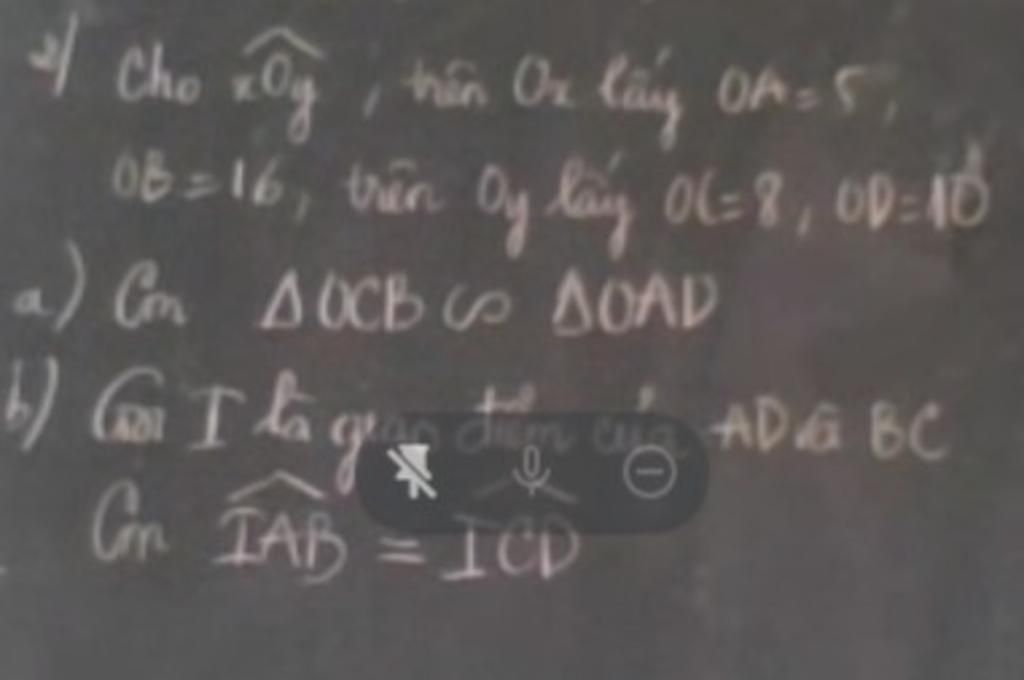 2/ Cho xOy, trên Ox lấy OA = 5,
OB = 16, trên Oy lấy OC = 8, OD = 10
a) Cm ΔOCB ∽ ΔOAD
b) Gọi I là giao điểm của AD và BC
Cm IAB = ICD